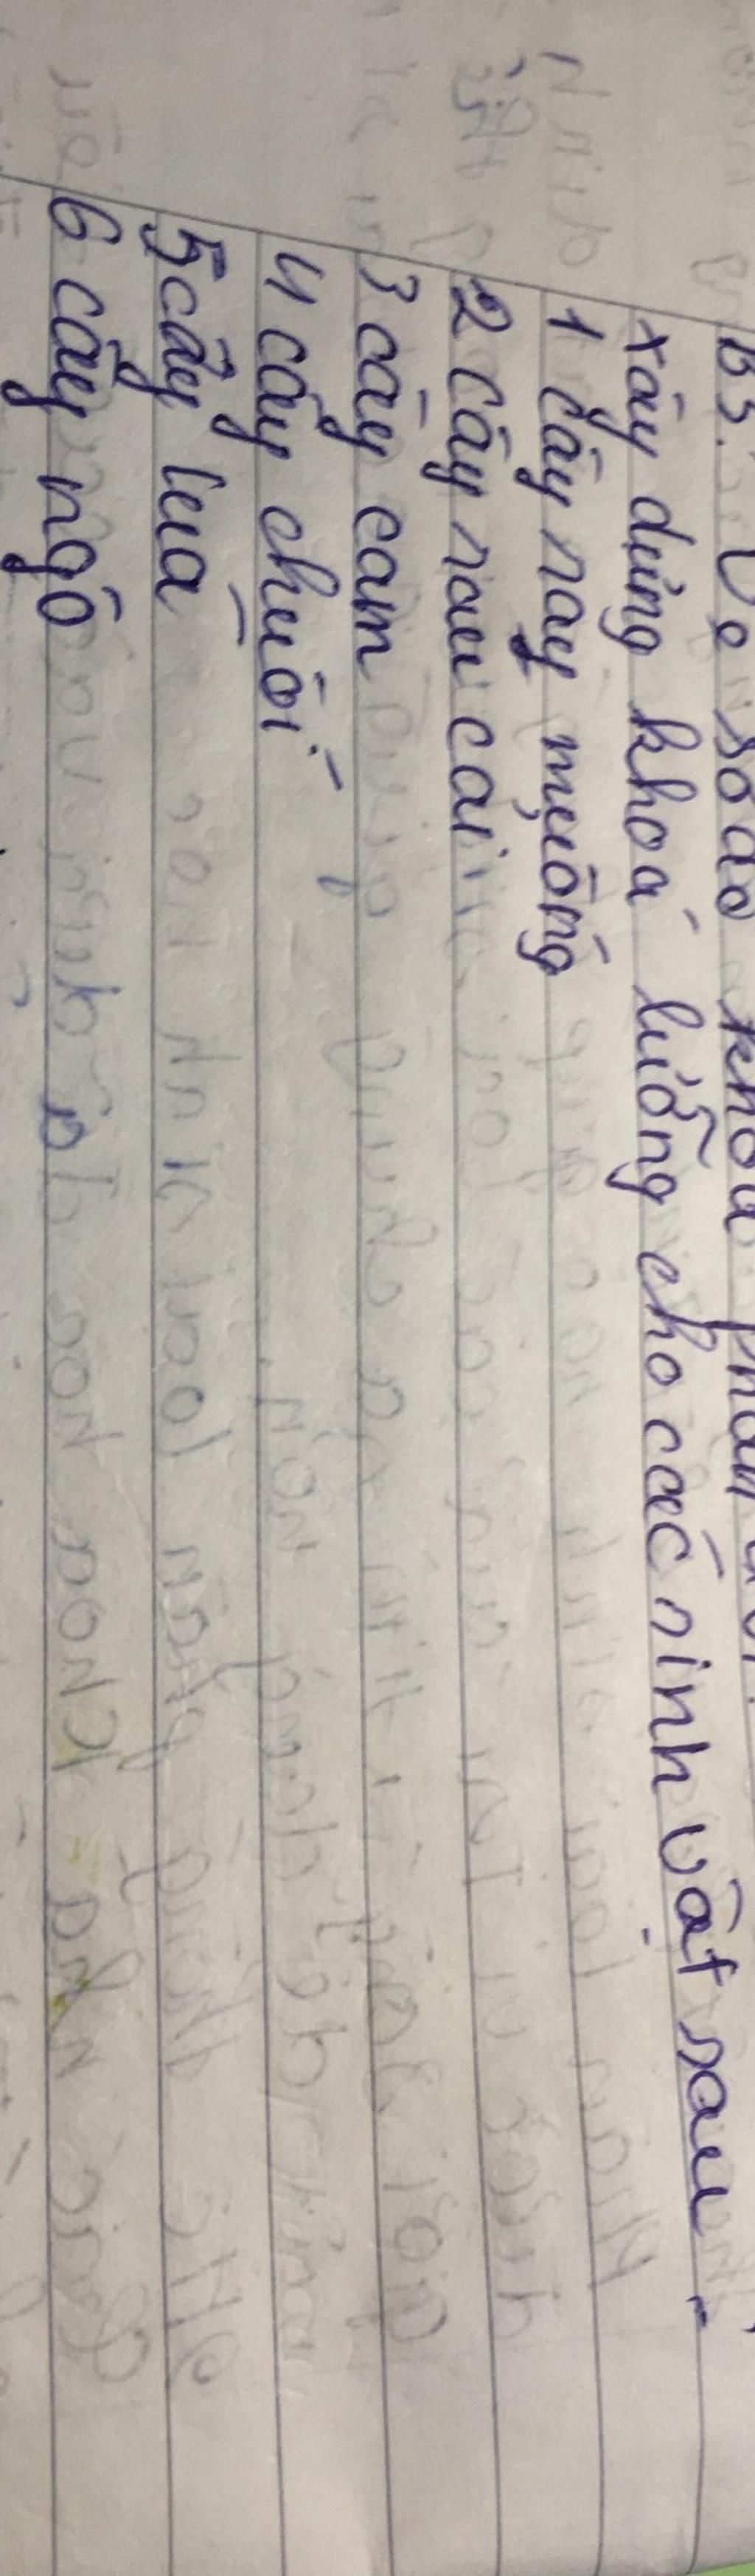 B3: Vẽ sơ đồ khoá phân
xây dựng khoá lưỡng cho các sinh vật sau:
1 cây rau muống
2 cây rau cải
3 cây cam
4 cây chuối
5 cây lúa
6 cây ngô